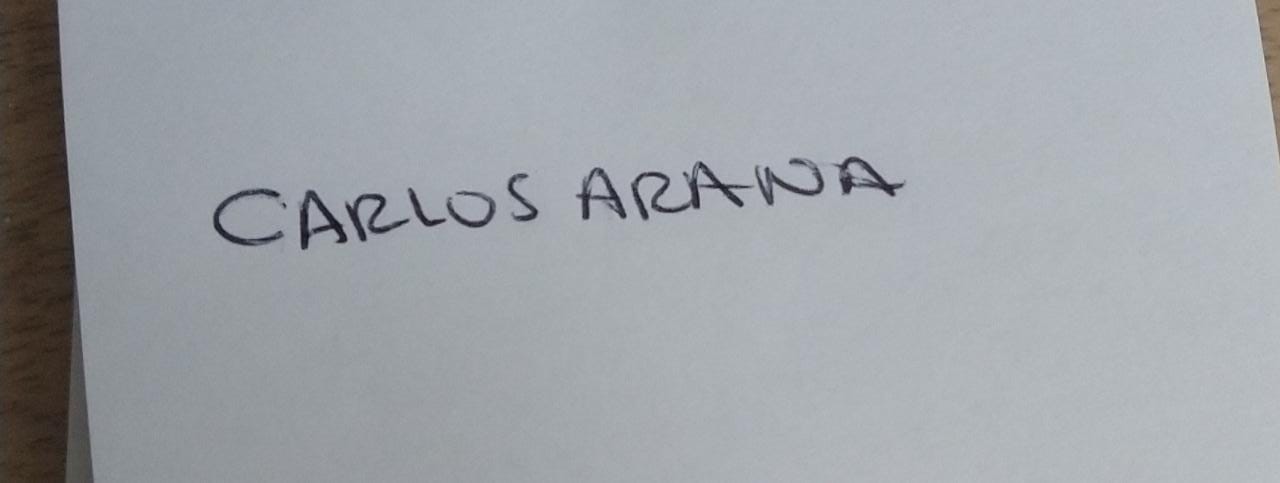 CARLOS ARANA